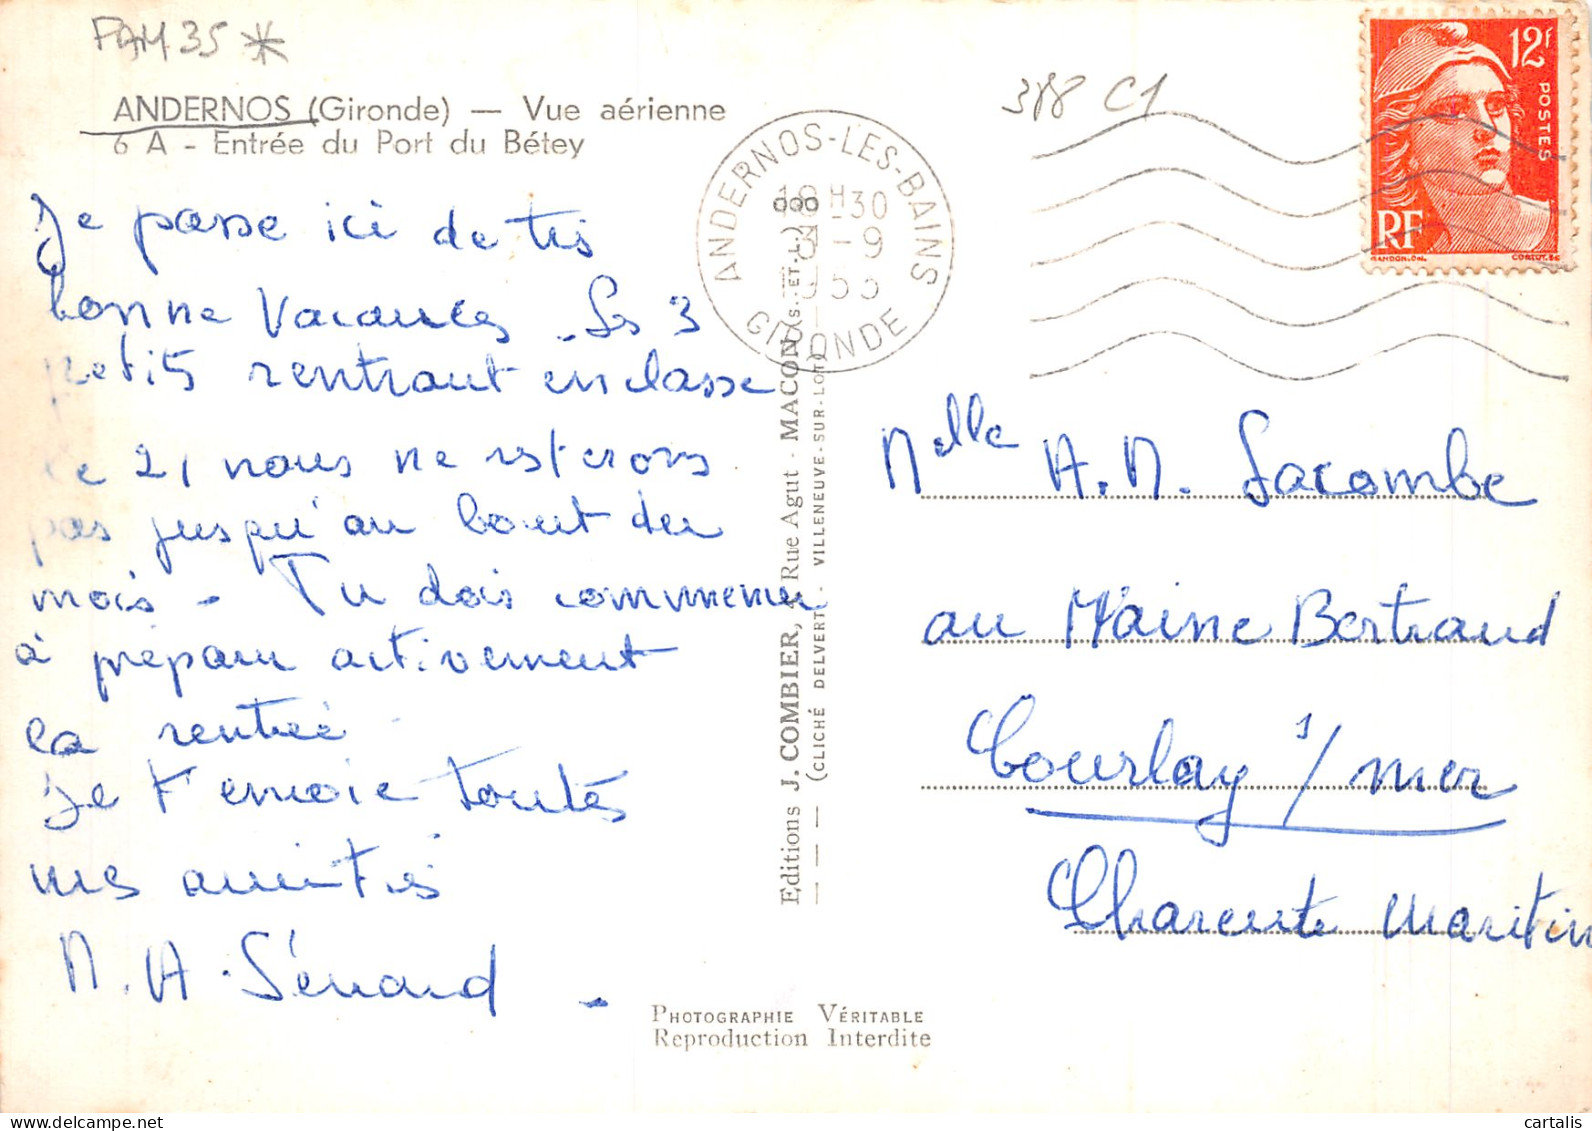 FAM 35 *
388 C1
ANDERNOS (Gironde) — Vue aérienne
6 A - Entrée du Port du Bétey
12f
POSTES
RF
GANDON.DEL.
CORTOT.SC
ANDERNOS-LES-BAINS
18H30
-9
1953
GIRONDE
Je passe ici de très
bonne Vacances. Les 3
petits rentraut en classe
le 21, nous ne resterons
pas jusqu'au bout du
mois - Tu dois commencer
à préparer activement
la rentrée
Je t'envoie toutes
mes amitiés
M. A. Sénard -
Editions J. COMBIER, 4 Rue Agut - MACON (S. ET L.)
(CLICHÉ DELVERT - VILLENEUVE-SUR-LOT)
Melle A. M. Lacombe
au Maine Bertraud
Courlay s/ mer
Charente Maritim
PHOTOGRAPHIE VÉRITABLE
Reproduction Interdite
cartalis